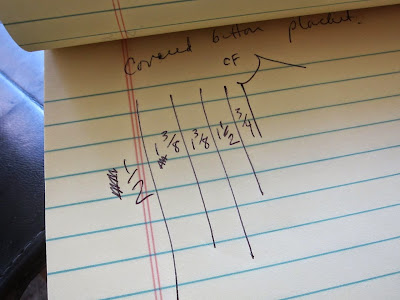 Covered button placket.
CF
1/2 1 3/8 1 3/8 1 1/2 3/4